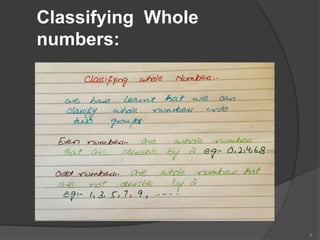 Classifying Whole
numbers:
Classifying whole Numbers..
we have learnt that we can
classify whole numbers into
two groups:
Even numbers- are whole numbers
that are divisible by 2 eg:- 0,2,4,6,8....
Odd numbers- are whole numbers that
are not divisible by 2
eg:- 1, 3, 5, 7, 9, .....